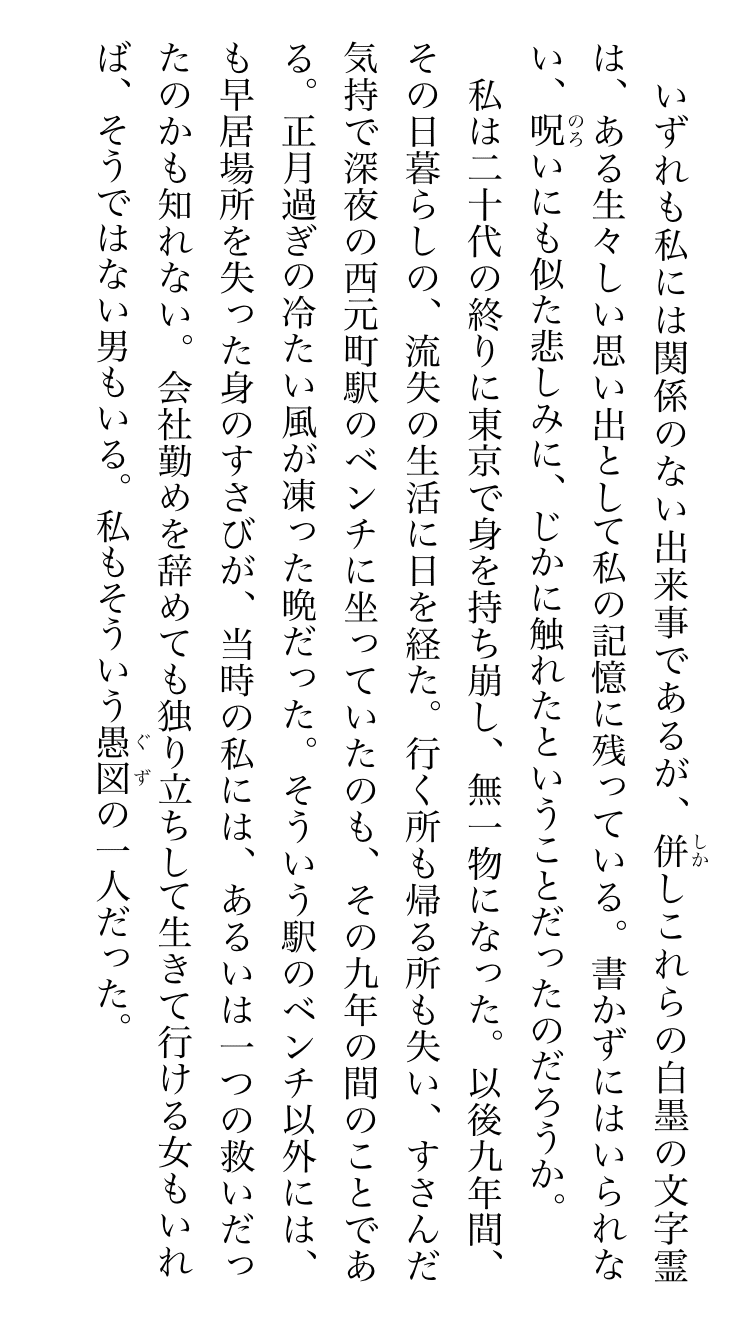 いずれも私には関係のない出来事であるが、併しこれらの白墨の文字霊
は、ある生々しい思い出として私の記憶に残っている。書かずにはいられな
い、呪いにも似た悲しみに、じかに触れたということだったのだろうか。
私は二十代の終りに東京で身を持ち崩し、無一物になった。以後九年間、
その日暮らしの、流失の生活に日を経た。行く所も帰る所も失い、すさんだ
気持で深夜の西元町駅のベンチに坐っていたのも、その九年の間のことであ
る。正月過ぎの冷たい風が凍った晩だった。そういう駅のベンチ以外には、
も早居場所を失った身のすさびが、当時の私には、あるいは一つの救いだっ
たのかも知れない。会社勤めを辞めても独り立ちして生きて行ける女もいれ
ば、そうではない男もいる。私もそういう愚図の一人だった。
しか
のろ
ぐず